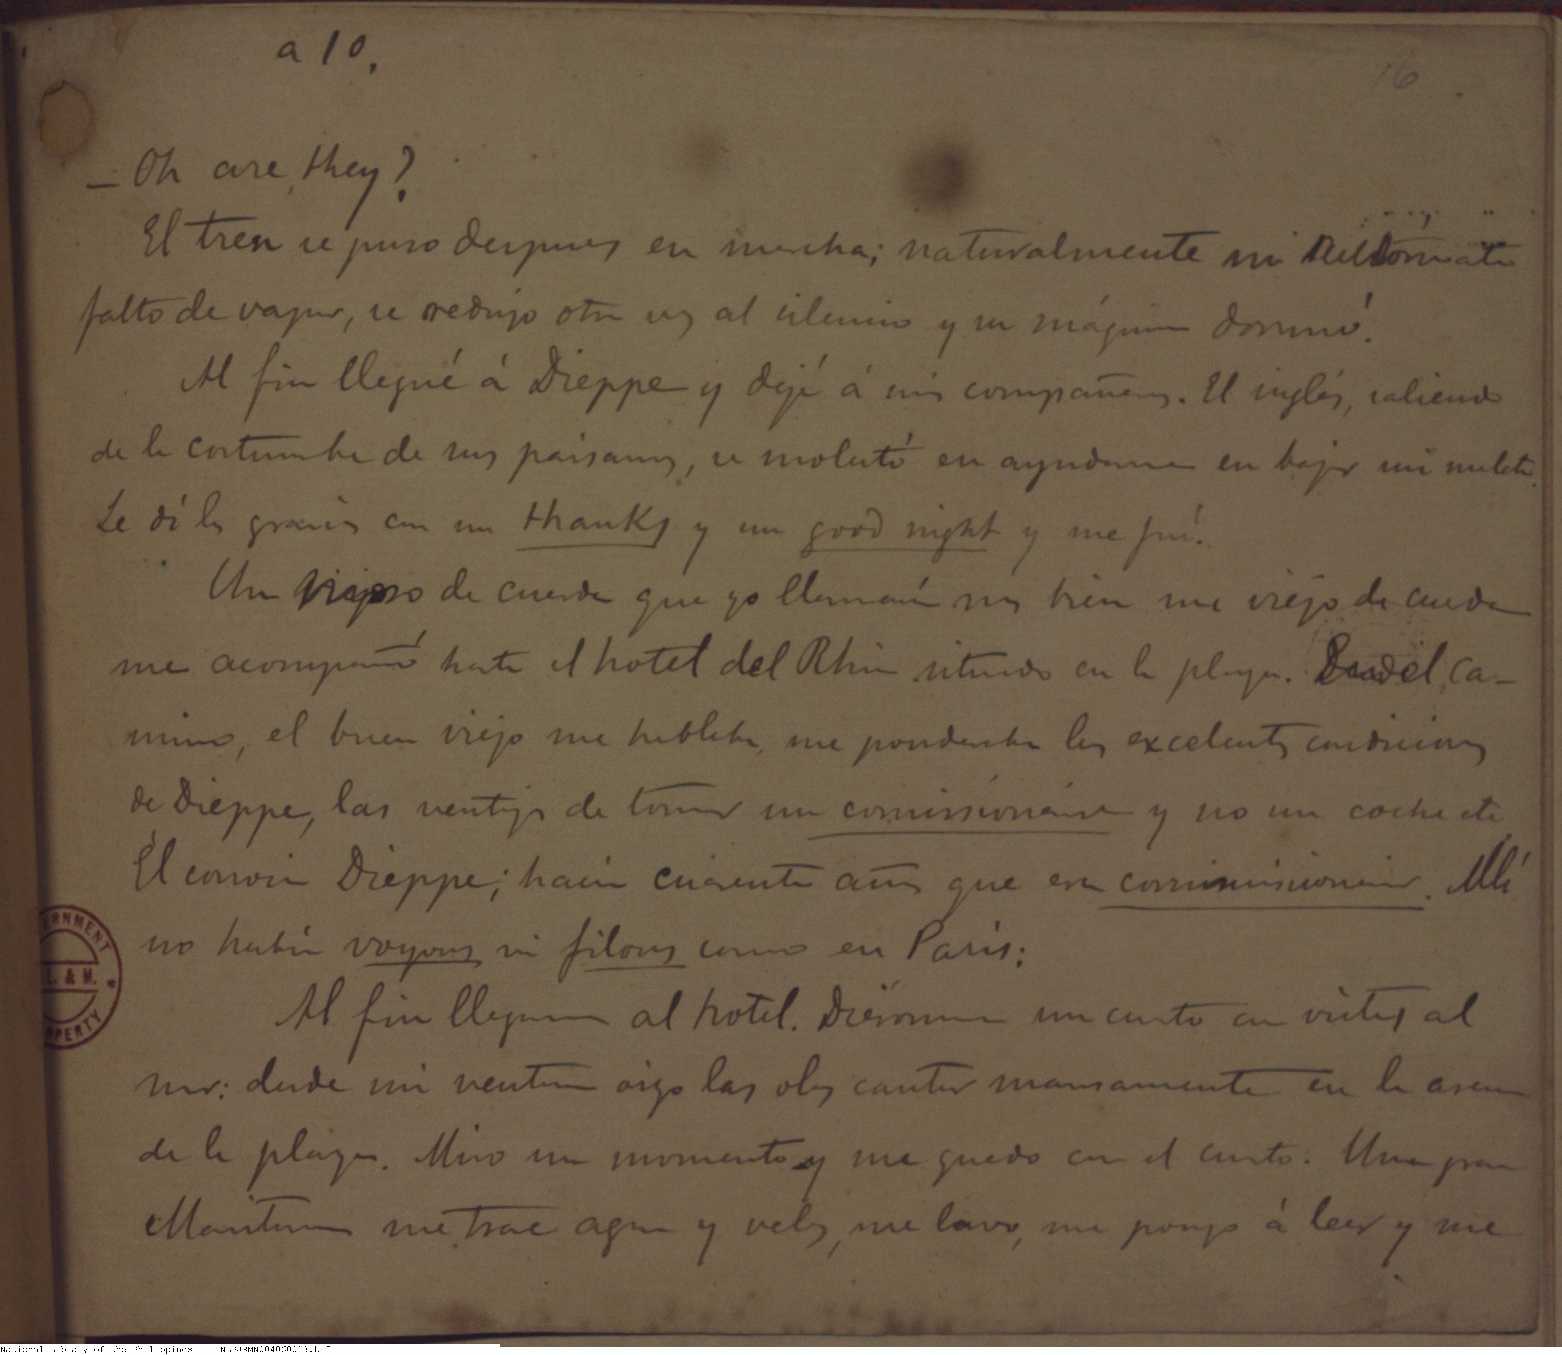 a 10.
16
— Oh are they?
El tren se puso despues en marcha; naturalmente mi
falto de vapor, se redujo otra vez al silencio y su máquina durmió.
Al fin llegué á Dieppe y dejé á mis compañeros. El inglés, saliendo
de la costumbre de sus paisanos, se molestó en ayudarme en bajar mi maleta.
Le dí las gracias con un thanks y un good night y me fuí.
Un viejo de cuerda que yo llamaría mas bien un viejo de cuerda
me acompañó hasta el hotel del Rhin situado en la playa. el ca-
mino, el buen viejo me hablaba, me ponderaba las excelentes condiciones
de Dieppe, las ventajas de tomar un comissionaire y no un coche etc
El conocia Dieppe; hacía cuarenta años que era commissionaire. Allí
no había voyous ni filous como en Paris:
Al fin llegamos al hotel. Diéronme un cuarto con vistas al
mar: desde mi ventana oigo las olas cantar mansamente en la arena
de la playa. Miro un momento y me quedo con el cuarto. Una gran
Maritornes me trae agua y velas, me lavo, me pongo á leer y me
GOVERNMENT
L. & M.
PROPERTY
National Library of the Philippines